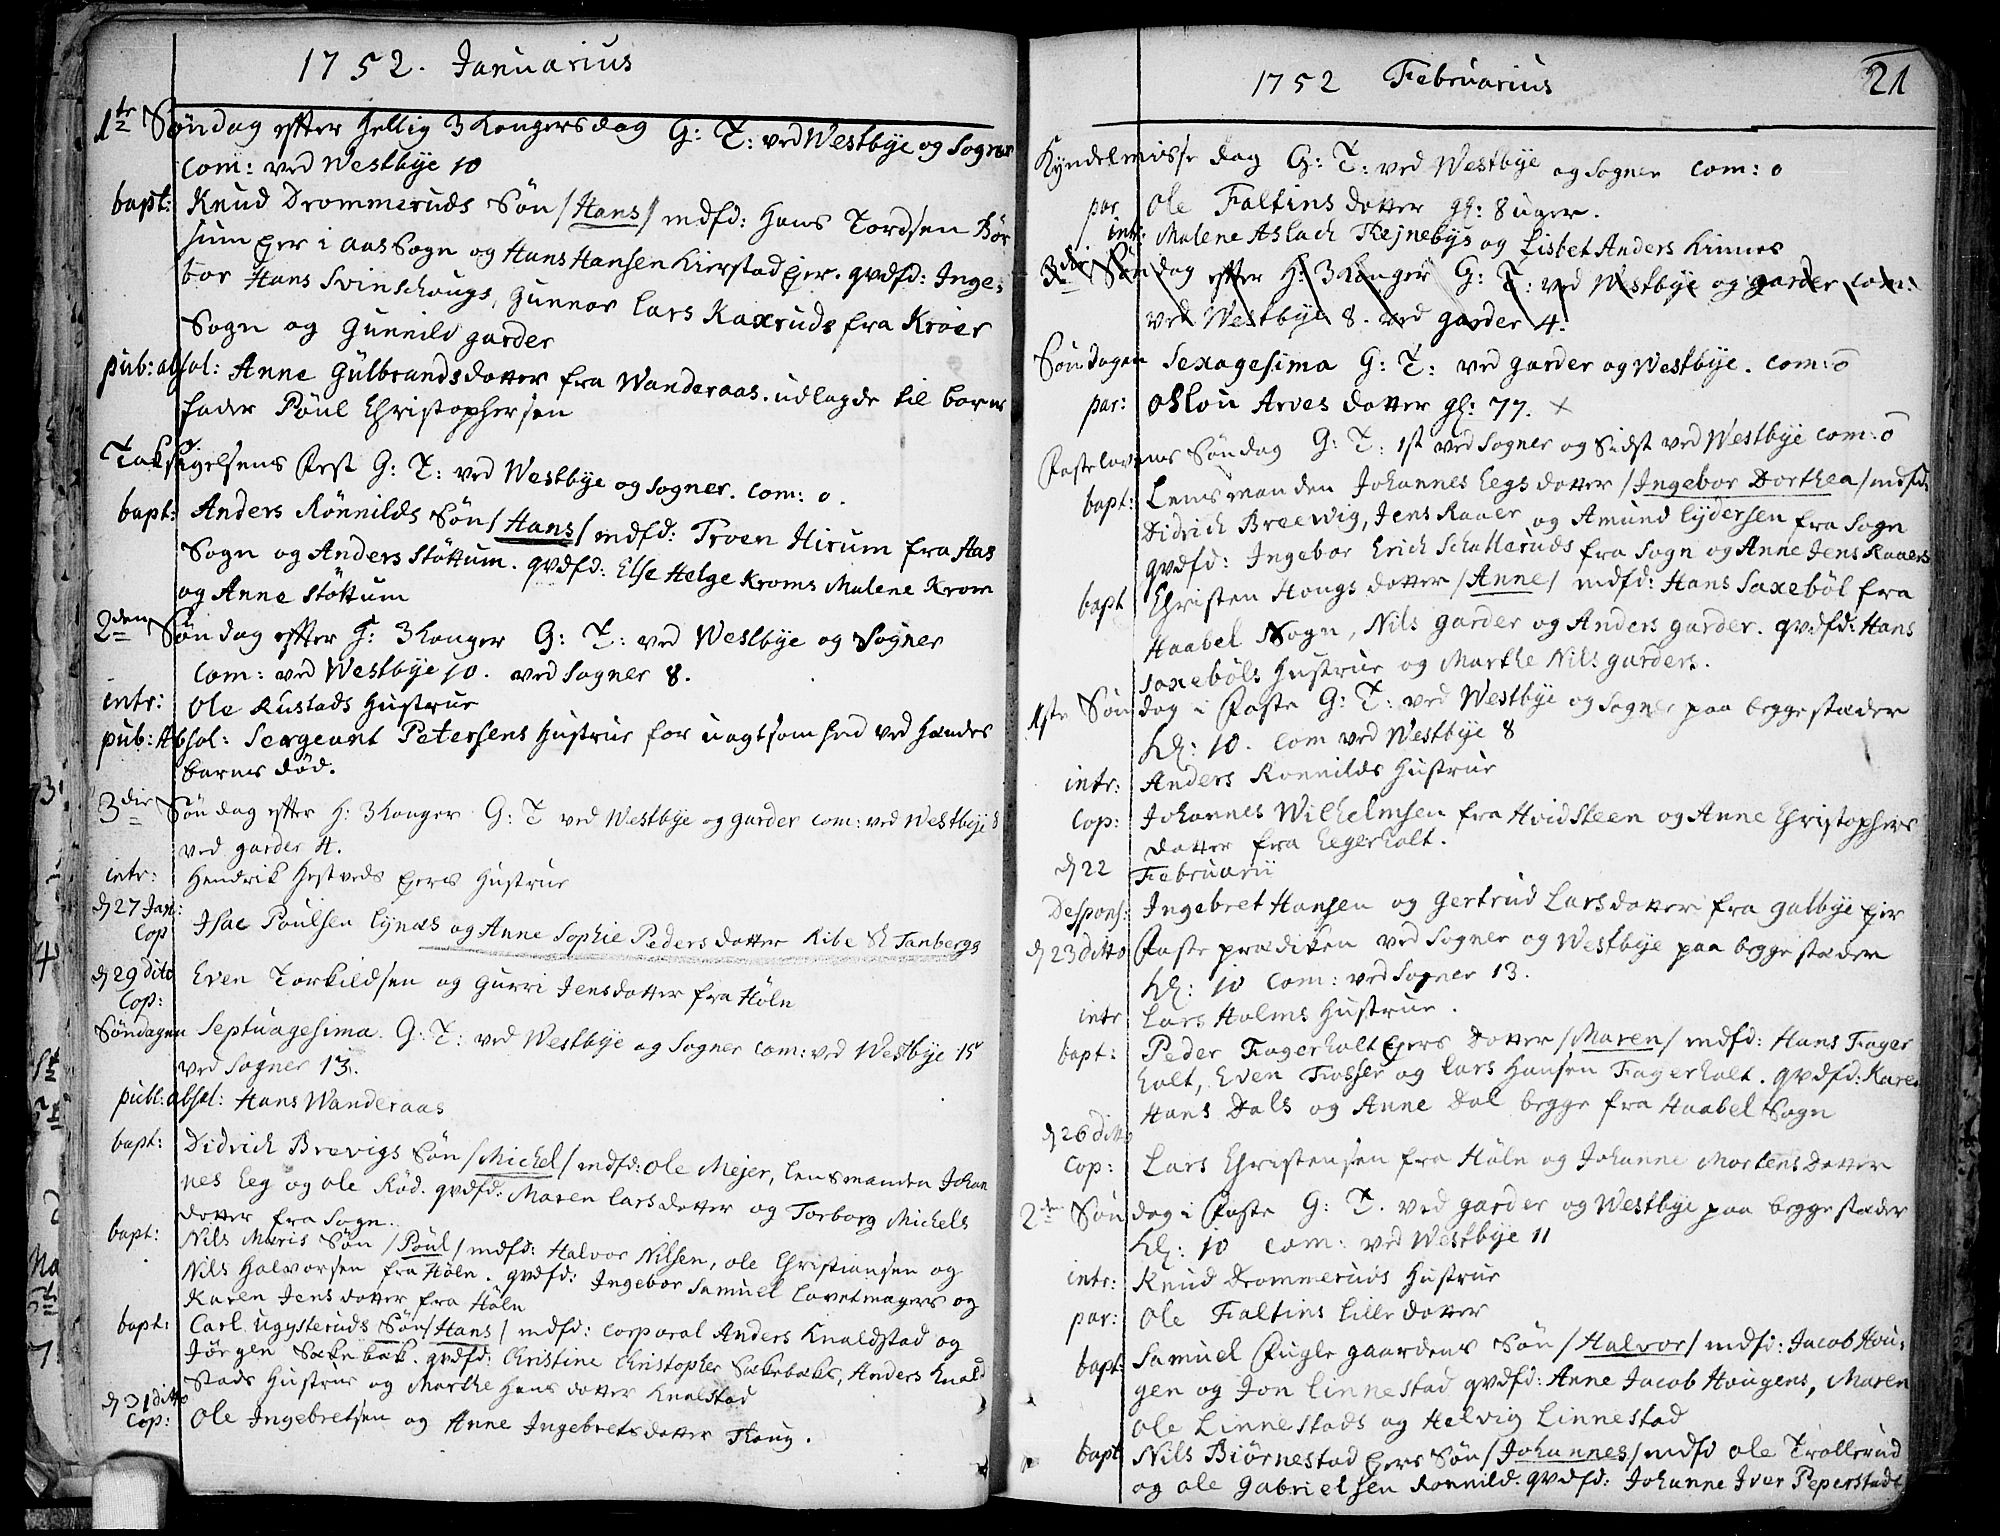 1752. Januarius
1te Søndag efter Hellig 3 Kongersdag G: T: ved Westbye og Sogner
Com: ved Westbye 10
bapt: Knud Drommeruds Søn /Hans/ mdfd: Hans Tordsen Bør
sum Eier i Aas Sogn og Hans Hansen Kierstad Eier. qvdfd: Inge:
bor Hans Svinschougs, Gunnor Lars Kaxruds fra Kroer
Sogn og Gunnild garder
pub: absol: Anne Gulbrandsdotter fra Wanderaas. udlagde til barne
fader Poul Christophersen
Taksigelsens Fest G: T: ved Westbye og Sogner. Com: 0.
bapt: Anders Rønnilds Søn /Hans/ mdfd: Troen Hirum fra Aas
Sogn og Anders Støttum. qvdfd: Else Helge Kroms Malene Krom
og Anne Støttum
2den Søndag efter H: 3 Konger G: T: ved Westbye og Sogner
Com: ved Westbye 10. ved Sogner 8.
intr: Ole Rustads Hustrue
pub: Absol: Sergeant Petersens Hustrue for uagtsomhed ved hendes
barnes død.
3die Søndag efter H: 3 Konger G: T ved Westbye og garder Com: ved Westbye 8
ved garder 4.
intr: Hendrik Hestveds Eiers Hustrue
d 27 Jan:
Cop Isac Poulsen Lynæs og Anne Sophie Peders dotter Ribe Tanbergs
d 29 dito Even Torkildsen og Gurri Jensdotter fra Høln
Cop:
Søndagen Septuagesima. G: T: ved Westbye og Sogner Com: ved Westbye 15
ved Sogner 13.
publ: absol: Hans Wanderaas
bapt: Didrich Brevigs Søn /Michel/ mdfd: Ole Mejer, Lensmanden Johan
nes Eeg og Ole Rød. qvdfd: Maren Larsdotter og Torborg Michels
dotter fra Sogn.
bapt: Nils Muris Søn /Poul/ mdfd: Halvor Nilsen, Ole Christiansen og
Nils Halvorsen fra Høln. qvdfd: Ingebor Samuel Lavetmagers og
Karen Jensdotter fra Høln
bapt: Carl Ugysteruds Søn /Hans/ mdfd: Corporal Anders Knaldstad og
Jørgen Sækebæk. qvdfd: Christine Christopher Sækebæks, Anders Knald
Stads Hustrue og Marthe Hans dotter Knalstad
d 31 ditto
Cop: Ole Ingebretsen og Anne Ingebretsdotter Skoug.
1752 Februarius 21
Kyndelmisse dag G: T: ved Westbye og Sogner Com: 0
par Ole Faltins dotter gl: 8 uger.
intr: Malene Aslach Skejnebys og Lisbet Anders Kinnes
3die Søndag efter H: 3 Konger G: T: ved Westbye og garder Com:
ved Westbye 8. ved garder 4.
Søndagen Sexagesima G: T: ved garder og Westbye. Com: 0
par: Oslou Arves dotter gl: 77. x
Fastelavens Søndag G: T: 1st ved Sogner og Sidst ved Westbye Com: 0
bapt: Lensmanden Johannes Eegs dotter /Ingebor Dorthea/ mdfd:
Didrich Breewig, Jens Raaer og Amund Eydersen fra Sogn
qvdfd: Ingebor Erich Schatteruds fra Sogn og Anne Jens Raaers
bapt Christen Hougs dotter /Anne/ mdfd: Hans Saxebøl fra
Haabel Sogn, Nils garder og Anders garder. qvdfd: Hans
Saxebøls Hustrue og Marthe Nils garders.
1ste Søndag i Faste G: T: ved Westbye og Sogner paa begge stæder
Kl: 10. Com ved Westbye 8
intr: Anders Ronnilds Hustrue
Cop: Johannes Wilhelmsen fra Hvidsteen og Anne Christophers
dotter fra Eegerholt.
d 22 Februarii
Despons: Ingebret Hansen og Gertrud Larsdotter fra galbye Eier
d 23 ditto Faste prædiken ved Sogner og Westbye paa begge stæder
Kl: 10 Com: ved Sogner 13.
intr Lars Holms Hustrue.
bapt: Peder Fagerholt Eiers dotter /Maren/ mdfd: Hans Fager
holt, Even Fosser og Lars Hansen Fagerholt. qvdfd: Karen
Hans Dals og Anne Dal begge fra Haabel Sogn
d 26 ditto
Cop: Lars Christensen fra Høln og Johanne Mortens Dotter
2den Søndag i Faste G: T. ved garder og Westbye paa begge stæder
Kl: 10 Com: ved Westbye 11
intr: Knud Drommeruds Hustrue
par: Ole Faltins Lille dotter
bapt: Samuel Fuglegaardens Søn /Halvor/ mdfd: Jacob Hou:
gen og Jon Linnestad qvdfd: Anne Jacob Hougens, Maren
Ole Linnestads og Helvig Linnestad
bapt Nils Biørnestad Eiers Søn /Johannes/ mdfd Ole Trollerud
og Ole Gabrielsen Ronnild. qvdfd: Johanne Iver Peperstads